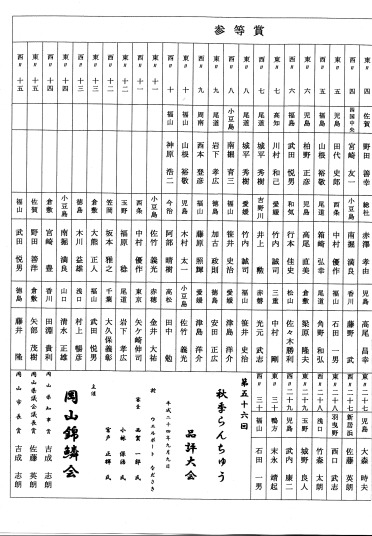 参等賞
東〃四 佐賀 野田善幸 総社 赤澤孝由 児島 高尾昌幸 東〃二十七 児島 大森時夫
西〃四 四国中央 宮崎友一 小豆島 南堀満良 香川 藤野武 西〃二十七 新居浜 佐藤英朗
東〃五 児島 田代史郎 西条 中村優作 福山 石田一男 東〃二十八 羽曳野 西口武志
西〃五 福山 山根裕敬 尾道 箱崎弘幸 尾道 角野弘 西〃二十八 浅口 竹森太朗
東〃六 児島 柏野正彦 児島 高尾直美 倉敷 栗原隆夫 東〃二十九 玉野 城野良人
西〃六 福島 武田悦男 和気 行本佳史 松山 佐々木勝利 西〃二十九 児島 武内康二
東〃七 高知 川村和己 愛媛 竹内誠司 三重 中村剛 東〃三十 鴨方 末永晴起
西〃七 尾道 城平秀樹 吉野川 井上勲 赤磐 光元武志 西〃三十 福山 石田一男
東〃八 尾道 城平秀樹 愛媛 竹内誠司 福山 笹井史治
西〃八 小豆島 南堀育三 福山 笹井史治 愛媛 津島洋介
東〃九 尾道 岩下孝広 徳島 加古政則 徳島 安田正広
西〃九 周南 西本登彦 福山 藤原照輝 愛媛 津島洋介
東〃十 福山 山根裕敬 児島 木村太一 小豆島 佐竹義光
西〃十 福山 神原浩二 今治 阿部晴樹 高松 田中勉
東〃十一 小豆島 佐竹義光 赤穂 金井大祐
西〃十一 西条 中村優作 東京 矢ケ崎伸司
東〃十二 玉野 福原稔 尾道 岩下孝広
西〃十二 笠岡 坂本雅之 千葉 大久保義彰
東〃十三 倉敷 大能正人 福山 武田悦男
西〃十三 徳島 木川益雄 浅口 村上暢彦
東〃十四 小豆島 南堀満良 山口 清水正雄
西〃十四 倉敷 宮崎豊 香川 田淵貴利
東〃十五 佐賀 野田善洋 倉敷 矢部茂樹
西〃十五 福山 武田悦男 徳島 藤井隆
第五十六回
秋季らんちゅう
品評大会
平成二十四年九月九日
於 ウエルポートなださき
審査 西賀一郎氏
小林保治氏
宮戸正輝氏
主催
岡山錦鱗会
岡山県知事賞 吉成志朗
岡山県議会議長賞 佐藤英朗
岡山市長賞 吉成志朗